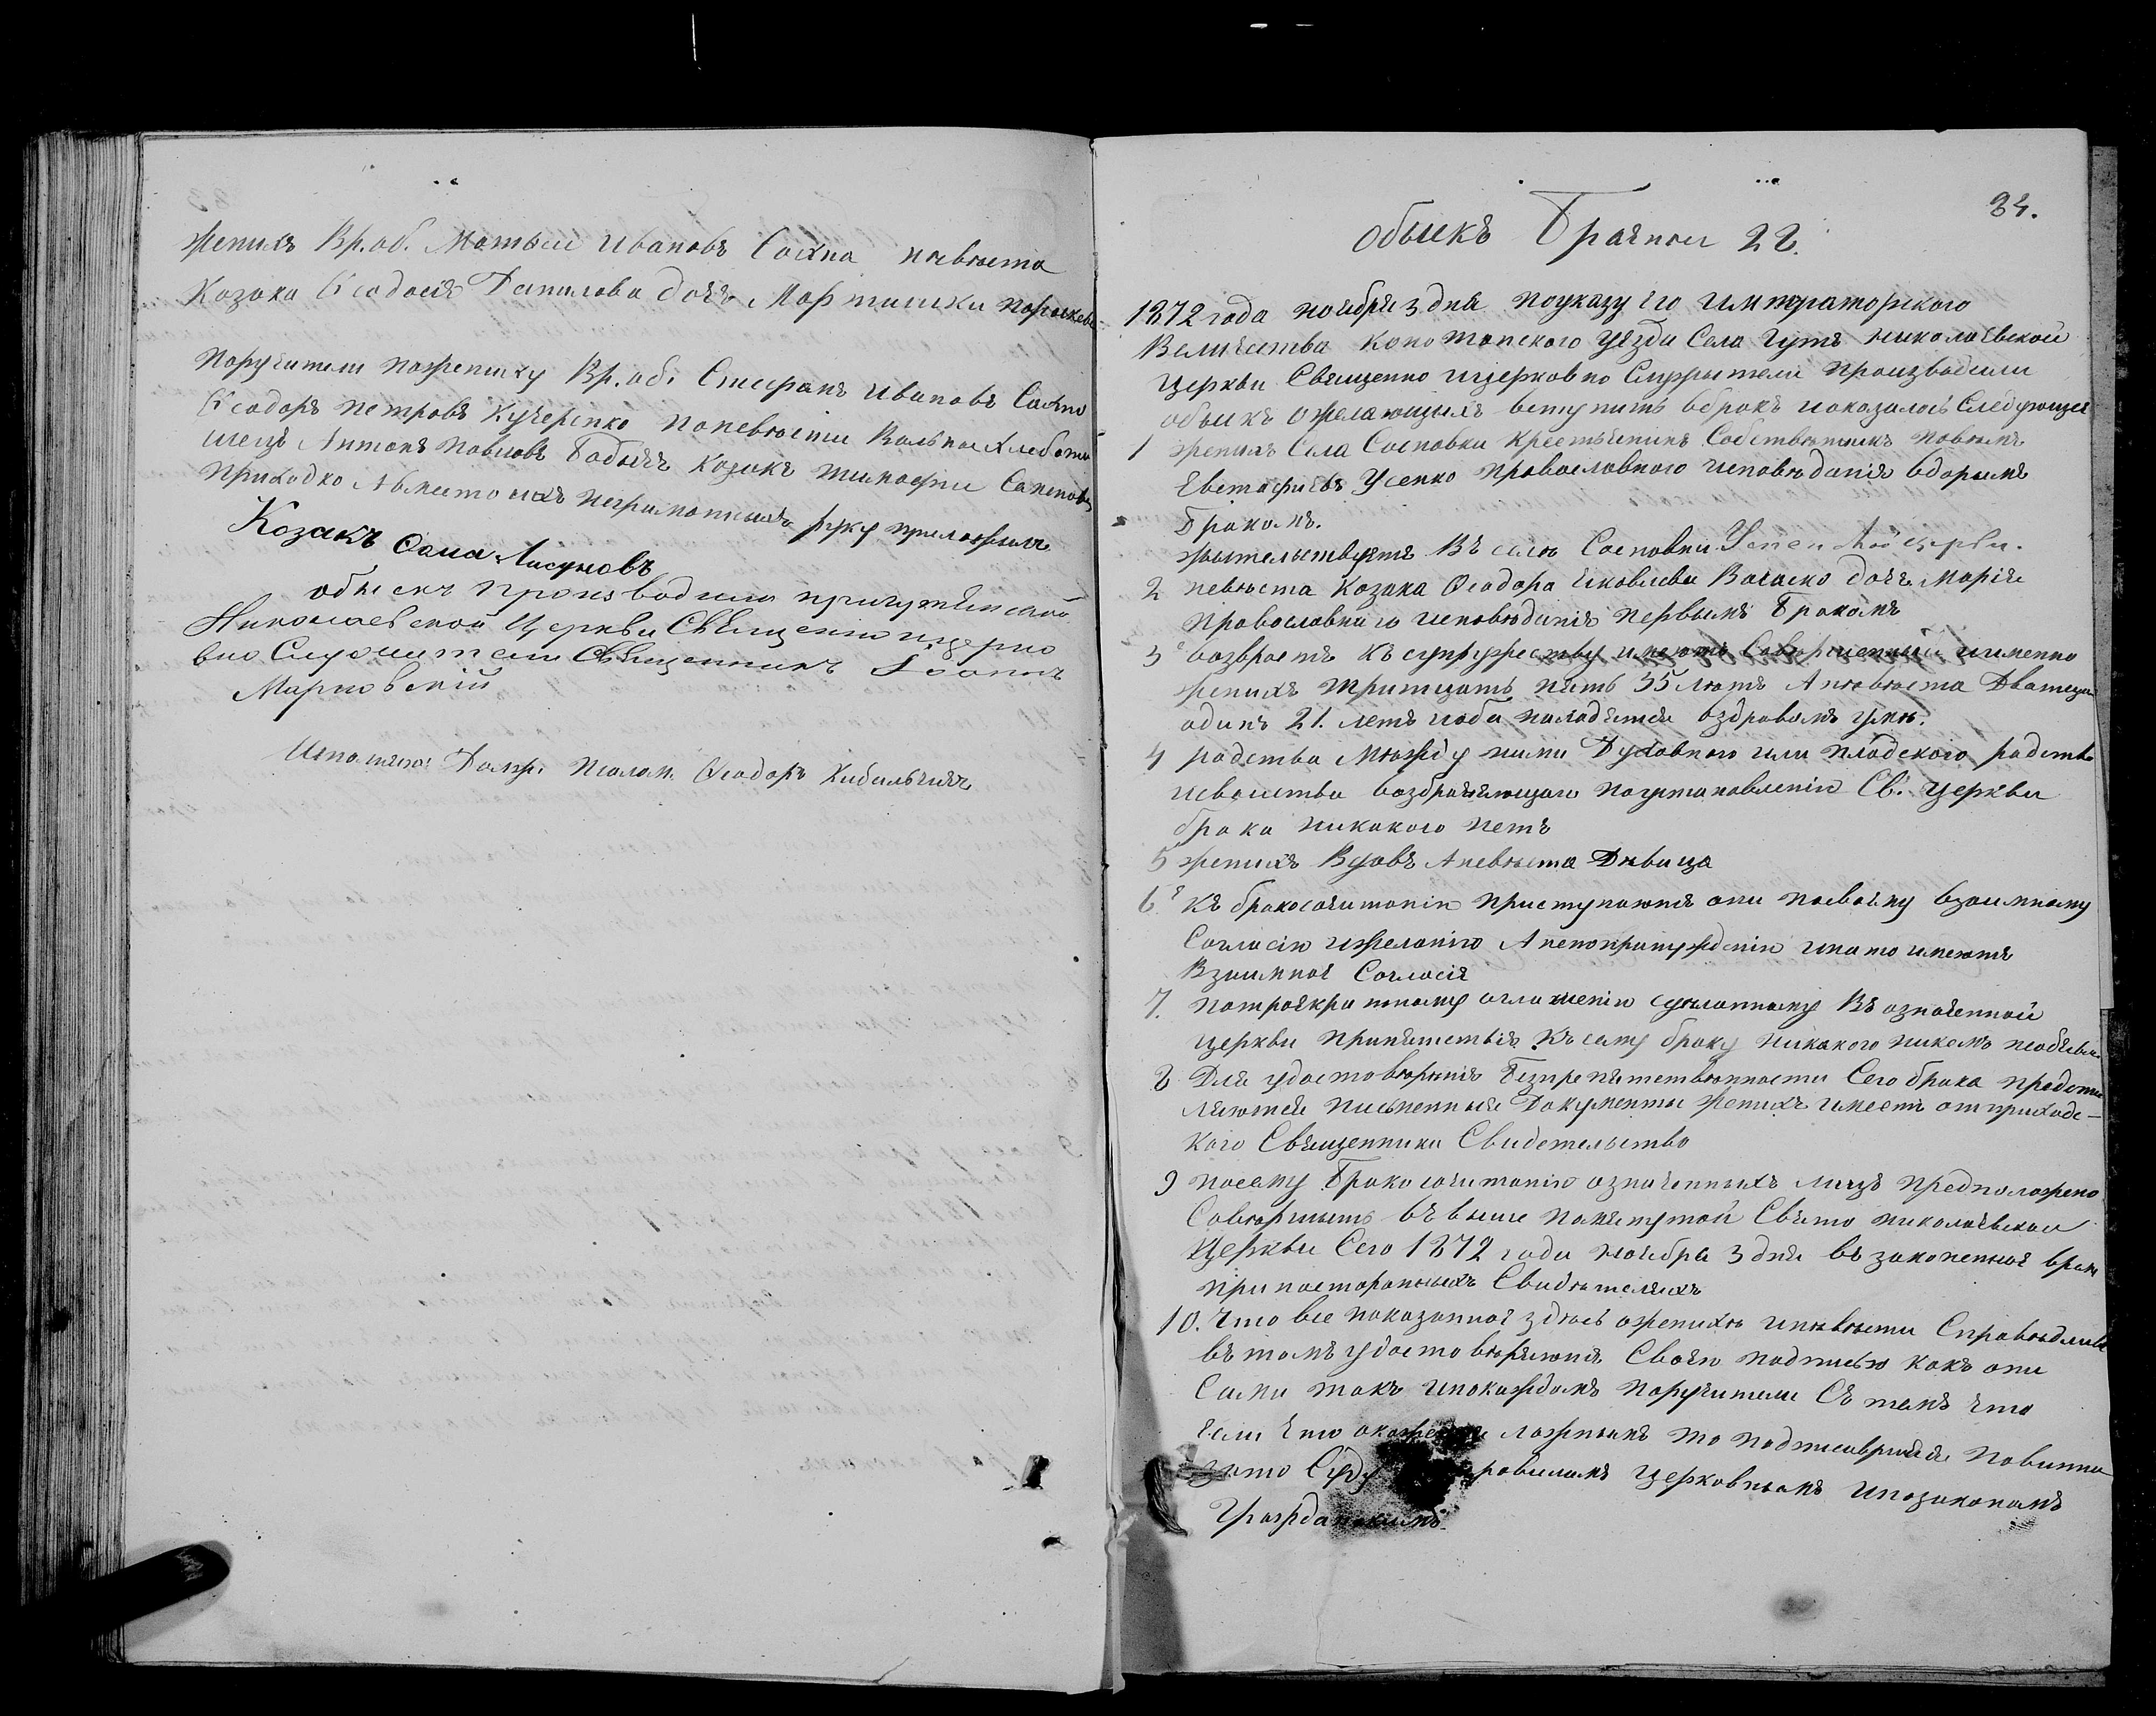 Женихъ Вр. об. Матвѣй Ивановъ Сахна невѣста
Козака Ѳеодосія Данилова дочь Мартишки Параскева
Поручители по жениху Вр. об. Стефанъ Ивановъ Сахно
Ѳеодоръ Петровъ Кучеренко по невѣсти Вольной хлебопа
шецъ Антонъ Павловъ козакъ Тимофѣй
Приходко А вместо ихъ неграмотныхъ руку приложилъ
Козакъ Лисуновъ
обыскъ производили
Николаевской Церкви Священно и церко
вно Служители Священникъ Іоаннъ
Марковскій
Исполняю: Должн: Псалом: Ѳеодоръ Кибальчичъ
34.
обыскъ Брачной 22.
1872 года ноября 3 дня по указу его императорского
Величества Конотопского уѣзда Села Гутъ николаевской
церкви Священно и церковно Служители производили
обыскъ о желающихъ вступить въ бракъ и оказалось Следующее
1 Женихъ Села Сосновки крестьянинъ Собственникъ
Евстафіевъ Усенко православного исповѣданія вдорымъ
Бракомъ.
жытельствуетъ Въ селѣ Сосновки Успен церкви.
2 невѣста Козака Ѳеодора Яковлева дочь Марія
Православнаго исповѣданія первымъ Бракомъ
3е возврастъ къ супружеству имеютъ Совершенный и именно
женихъ тритцать пять 35 лѣтъ А невѣста Дватцать
одинъ 21. летъ и оба находятся въ здравомъ умѣ.
4 родства Между ними Духовного или плодского родства
и свойства возбраняющаго по установленію Св. Церкви
брака никакого нетъ
5 женихъ Вдовъ А невѣста Дѣвица
6е Къ бракосочитанію приступаютъ они по своему взаимному
Согласію и желанію А не по принужденію и на то имеютъ
Взаимное Согласія
7. По троекратному оглашенію сделанному Въ означенной
церкви препятствія Къ сему браку никакого никемъ необъявл.
8 Для удостовѣренія безпрепятственности Сего брака предста
ляются письменныя Документы женихъ имеетъ от приходс-
кого Священника Свидетельство
9 посему Бракосочитаніе означенныхъ лицъ предположено
Совершить въ выше помянутой Свято николаевской
Церкви Сего 1872 года ноября 3 дня въ законенное врем
при посторонныхъ Свидѣтеляхъ
10. Что все показанное здѣсь о женихѣ и невѣсти Справедливо
въ томъ удостовѣряютъ Своею подписью какъ они
Сами такъ и по каждомъ поручители Съ темъ что
если что окажется ложнымъ то подписавшіяся повинны
зато Суду равиламъ церковнымъ и по законамъ
Гражданскимъ.